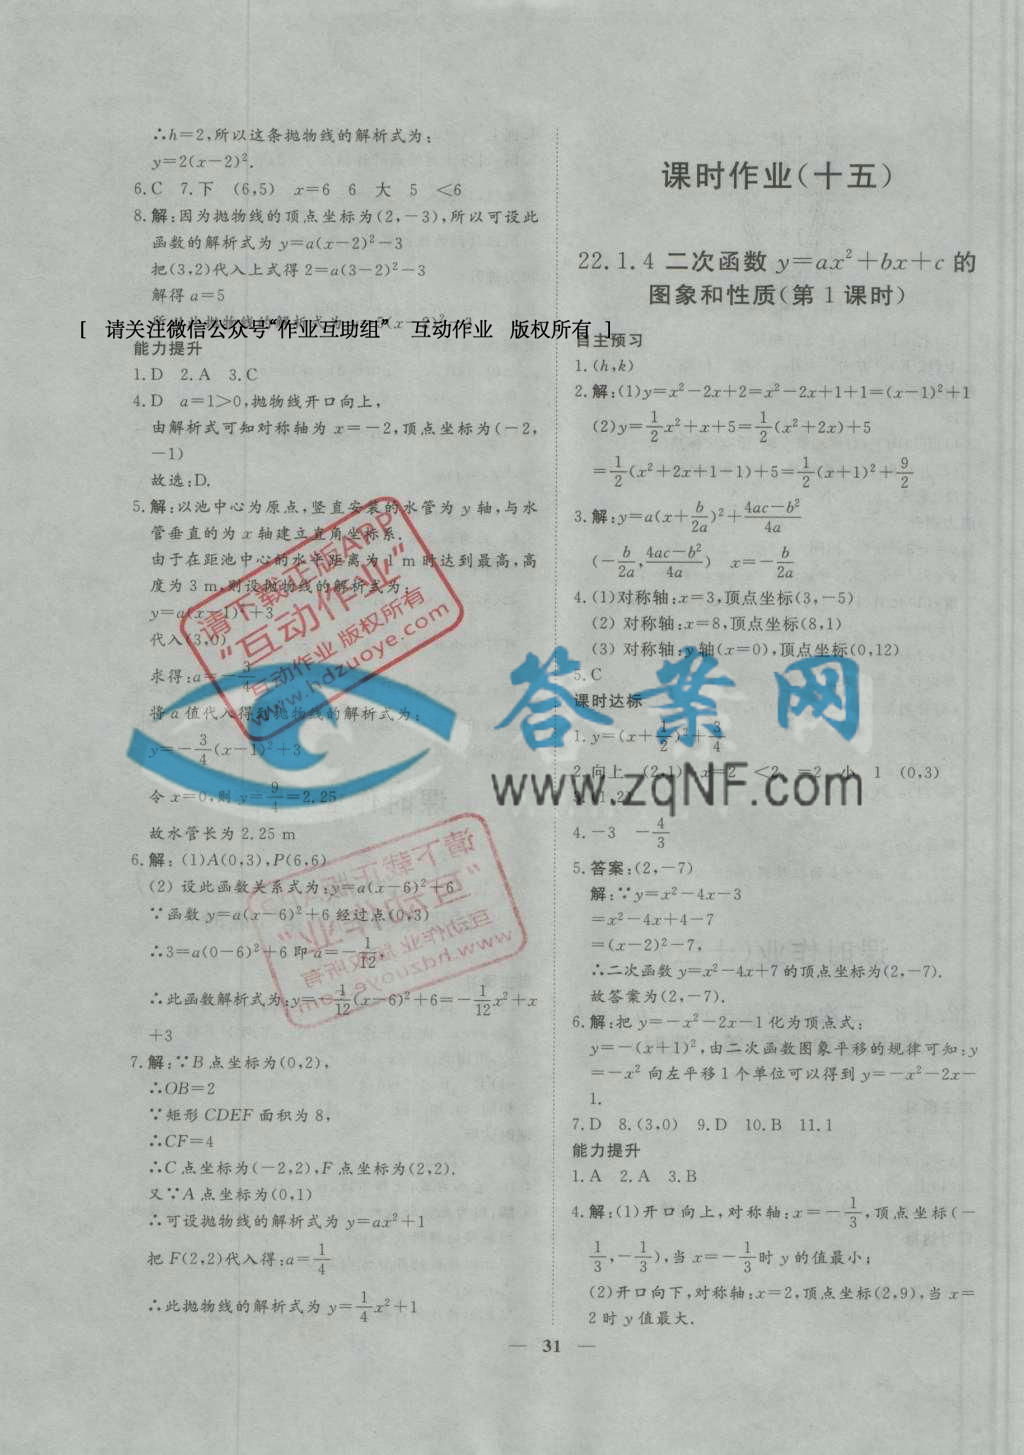 ∴h=2,所以这条抛物线的解析式为:
y=2(x-2)².
6.C 7.下 (6,5) x=6 6 大 5 <6
8.解:因为抛物线的顶点坐标为(2,-3),所以可设此
函数的解析式为 y=a(x-2)²-3
把(3,2)代入上式得 2=a(3-2)²-3
解得 a=5
[ 请关注微信公众号“作业互助组” 互动作业 版权所有 ]
能力提升
1.D 2.A 3.C
4.D a=1>0,抛物线开口向上,
由解析式可知对称轴为 x=-2,顶点坐标为(-2,
-1)
故选:D.
5.解:以池中心为原点,竖直安装的水管为 y 轴,与水
管垂直的为 x 轴建立直角坐标系.
由于在距池中心的水平距离为 1 m 时达到最高,高
度为 3 m,则设抛物线的解析式为:
y=a(x-1)²+3
代入(3,0)
求得:a=-3/4
将 a 值代入得到抛物线的解析式为:
y=-3/4(x-1)²+3
令 x=0,则 y=9/4=2.25
故水管长为 2.25 m
6.解:(1)A(0,3),P(6,6)
(2) 设此函数关系式为:y=a(x-6)²+6
∵函数 y=a(x-6)²+6 经过点(0,3)
∴3=a(0-6)²+6 即 a=-1/12,
∴此函数解析式为:y=-1/12(x-6)²+6=-1/12x²+x
+3
7.解:∵B 点坐标为(0,2),
∴OB=2
∵矩形 CDEF 面积为 8,
∴CF=4
∴C 点坐标为(-2,2),F 点坐标为(2,2).
又∵A 点坐标为(0,1)
∴可设抛物线的解析式为 y=ax²+1
把 F(2,2)代入得:a=1/4
∴此抛物线的解析式为 y=1/4x²+1
课时作业(十五)
22.1.4 二次函数 y=ax²+bx+c 的
图象和性质(第 1 课时)
自主预习
1.(h,k)
2.解:(1)y=x²-2x+2=x²-2x+1+1=(x-1)²+1
(2)y=1/2x²+x+5=1/2(x²+2x)+5
=1/2(x²+2x+1-1)+5=1/2(x+1)²+9/2
3.解:y=a(x+b/2a)²+4ac-b²/4a
(-b/2a,4ac-b²/4a) x=-b/2a
4.(1)对称轴:x=3,顶点坐标(3,-5)
(2) 对称轴:x=8,顶点坐标(8,1)
(3) 对称轴:y 轴(x=0),顶点坐标(0,12)
5.C
课时达标
1.y=(x+1/2)²+3/4
2.向上 (2,1) x=2 <2 =2 小 1 (0,3)
4.-3 -4/3
5.答案:(2,-7)
解:∵y=x²-4x-3
=x²-4x+4-7
=(x-2)²-7,
∴二次函数 y=x²-4x+7 的顶点坐标为(2,-7).
故答案为(2,-7).
6.解:把 y=-x²-2x-1 化为顶点式:
y=-(x+1)²,由二次函数图象平移的规律可知:y
=-x² 向左平移 1 个单位可以得到 y=-x²-2x-
1.
7.D 8.(3,0) 9.D 10.B 11.1
能力提升
1.A 2.A 3.B
4.解:(1)开口向上,对称轴:x=-1/3,顶点坐标(-
1/3,-1/3),当 x=-1/3时 y 的值最小;
(2)开口向下,对称轴:x=2,顶点坐标(2,9),当 x=
2 时 y 值最大.
— 31 —
请下载正版APP
“互动作业”
互动作业 版权所有
www.hdzuoye.com
答案网
www.zqNF.com